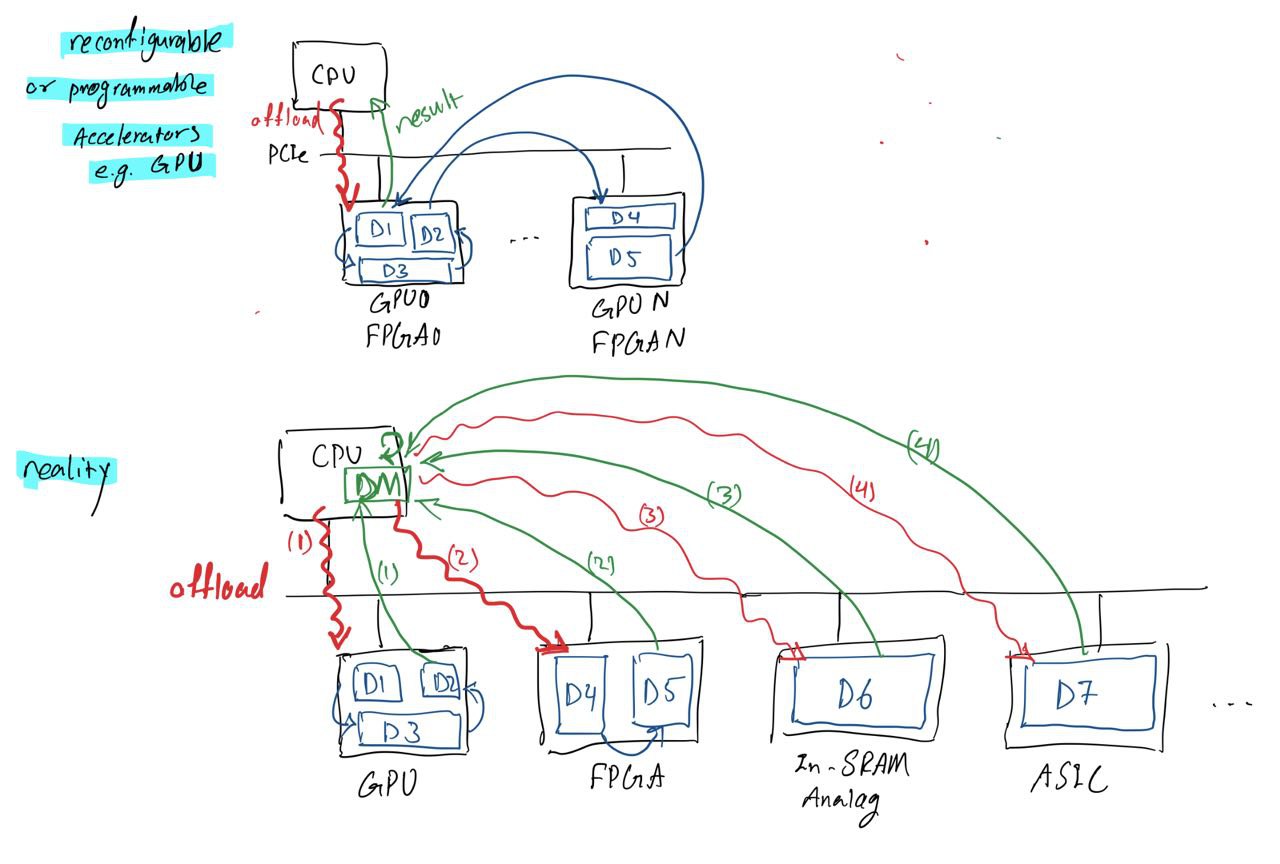 reconfigurable
or programmable
Accelerators
e.g. GPU
CPU
offload
result
PCIe
D1 D2
D3
...
D4
D5
GPU0
FPGA0
GPU N
FPGAN
reality
CPU
DM
(1)
(1)
(2)
(2)
(3)
(3)
(4)
(4)
offload
D1 D2
D3
D4 D5
D6
D7
...
GPU
FPGA
In-SRAM
Analag
ASIC